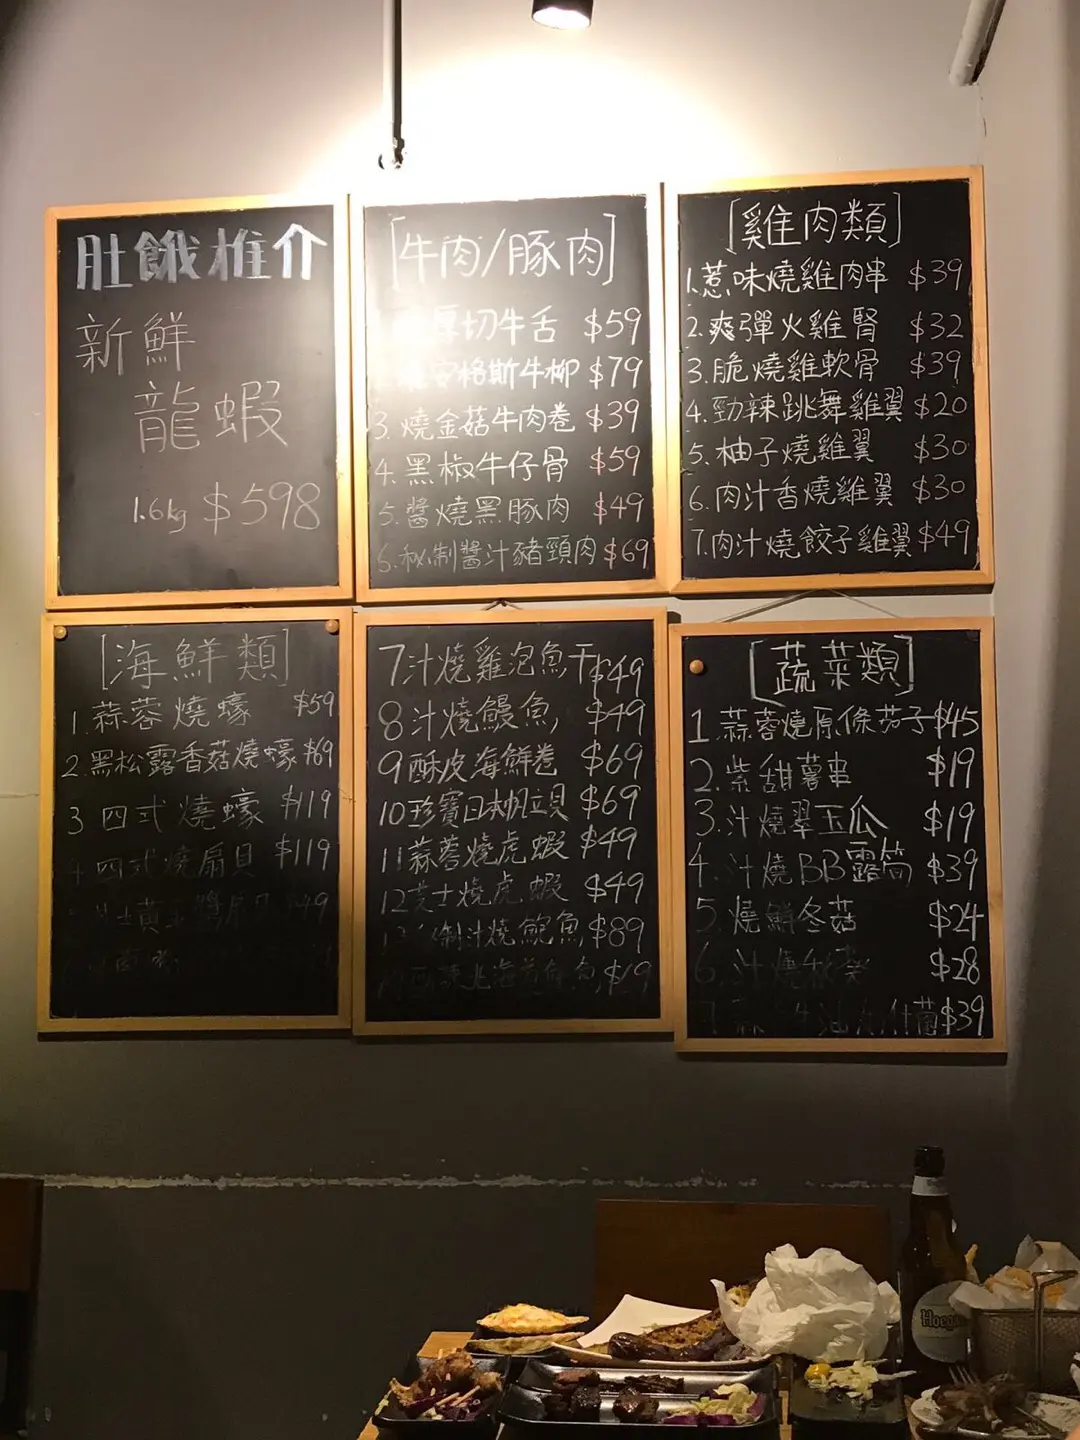 肚餓推介
新鮮
龍蝦
1.6kg $598
[牛肉/豚肉]
厚切牛舌 $59
安格斯牛柳 $79
3.燒金菇牛肉卷 $39
4.黑椒牛仔骨 $59
5.醬燒黑豚肉 $49
6.秘制醬汁豬頸肉 $69
[雞肉類]
1.惹味燒雞肉串 $39
2.爽彈火雞腎 $32
3.脆燒雞軟骨 $39
4.勁辣跳舞雞翼 $20
5.柚子燒雞翼 $30
6.肉汁香燒雞翼 $30
7.肉汁燒餃子雞翼 $49
[海鮮類]
1.蒜蓉燒蠔 $59
2.黑松露香菇燒蠔 $69
3 四式燒蠔 $119
4 四式燒扇貝 $119
7汁燒雞泡魚干 $49
8汁燒鰻魚 $49
9酥皮海鮮卷 $69
10珍寶日本帆立貝 $69
11蒜蓉燒虎蝦 $49
12芝士燒虎蝦 $49
制汁燒鮑魚 $89
北海道 魚 $19
[蔬菜類]
1.蒜蓉燒原條茄子 $45
2.紫甜薯串 $19
3.汁燒翠玉瓜 $19
4.汁燒BB露筍 $39
5.燒鮮冬菇 $24
6.汁燒秋葵 $28
7. $39